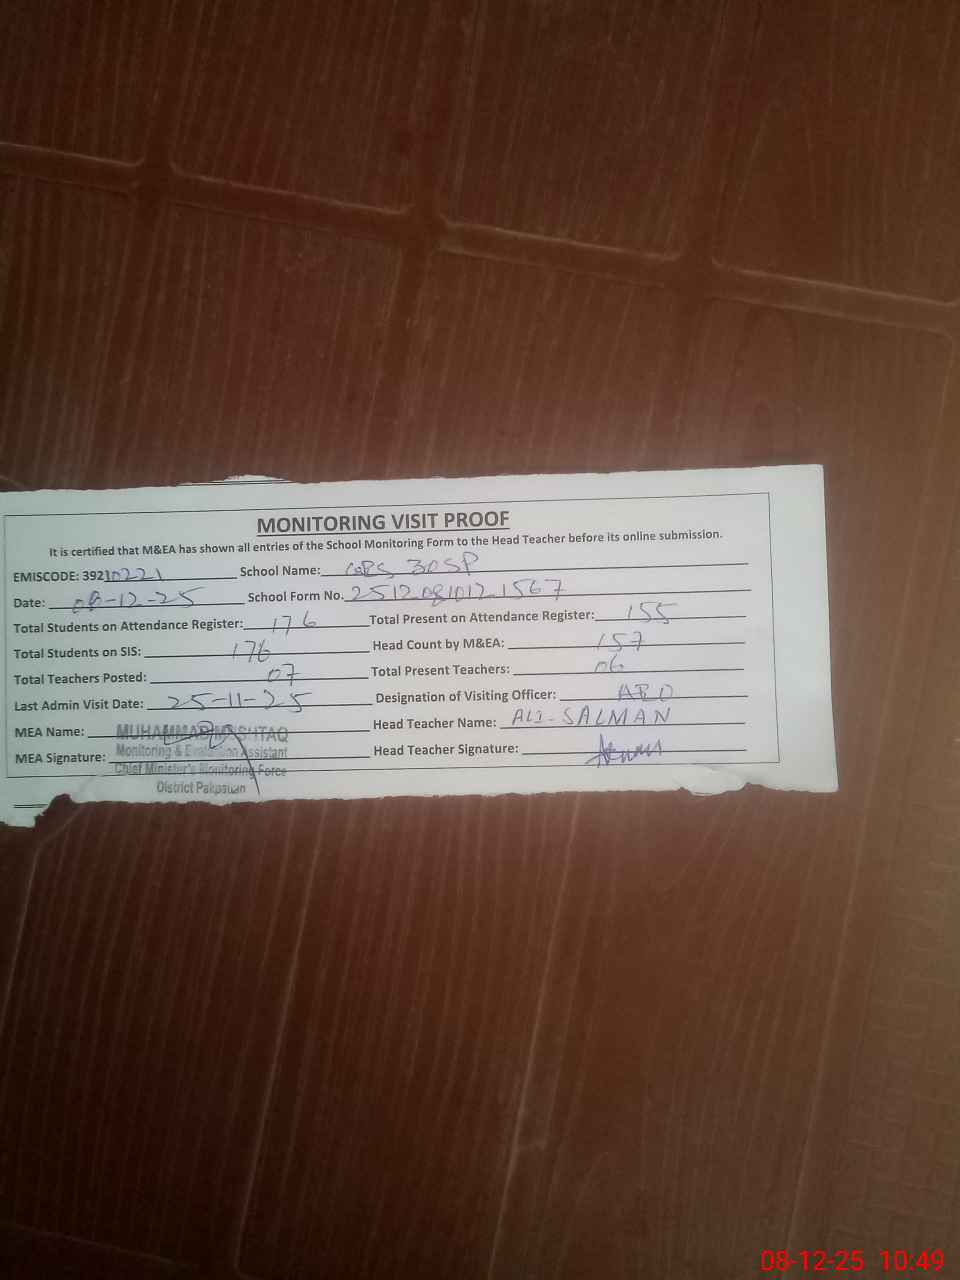 MONITORING VISIT PROOF
It is certified that M&EA has shown all entries of the School Monitoring Form to the Head Teacher before its online submission.
EMISCODE: 39210221 School Name: 30SP
Date: 08-12-25 School Form No. 25120810121567
Total Students on Attendance Register: 176 Total Present on Attendance Register: 155
Total Students on SIS: 176 Head Count by M&EA: 157
Total Teachers Posted: 07 Total Present Teachers: 06
Last Admin Visit Date: 25-11-25 Designation of Visiting Officer:
MEA Name: MUHAMMAD MUSHTAQ Head Teacher Name: ALI-SALMAN
MEA Signature: Monitoring & Evaluation Assistant Head Teacher Signature:
Chief Minister's Monitoring Force
District Pakpattan
08-12-25 10:49